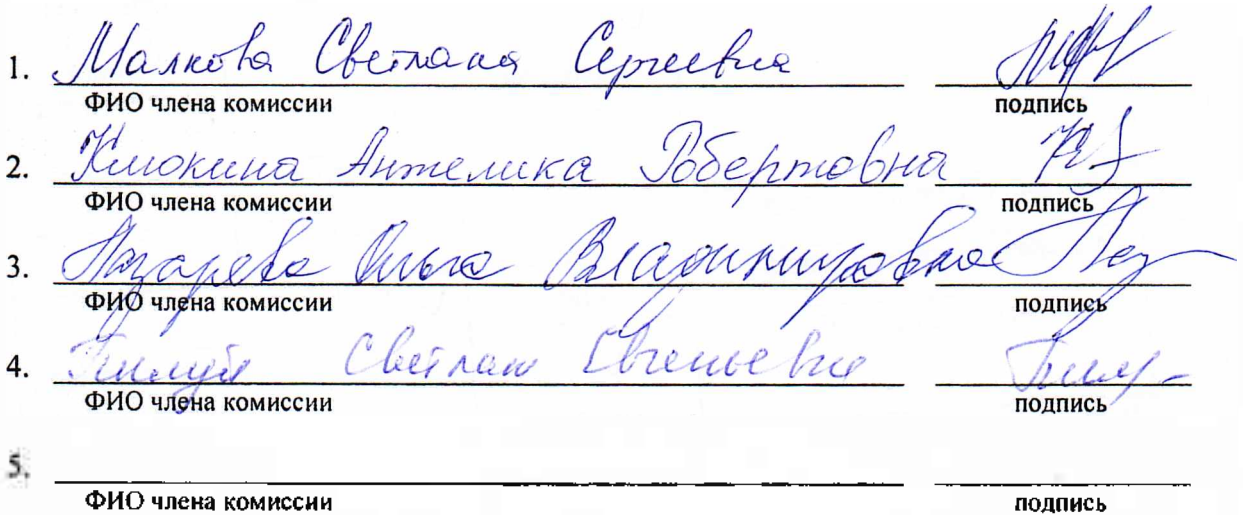 1. Малкова Светлана Сергеевна
ФИО члена комиссии подпись
2. Клюкина Анжелика Робертовна
ФИО члена комиссии подпись
3. Назарева Ольга Владимировна
ФИО члена комиссии подпись
4. Светлана Евгеньевна
ФИО члена комиссии подпись
5.
ФИО члена комиссии подпись